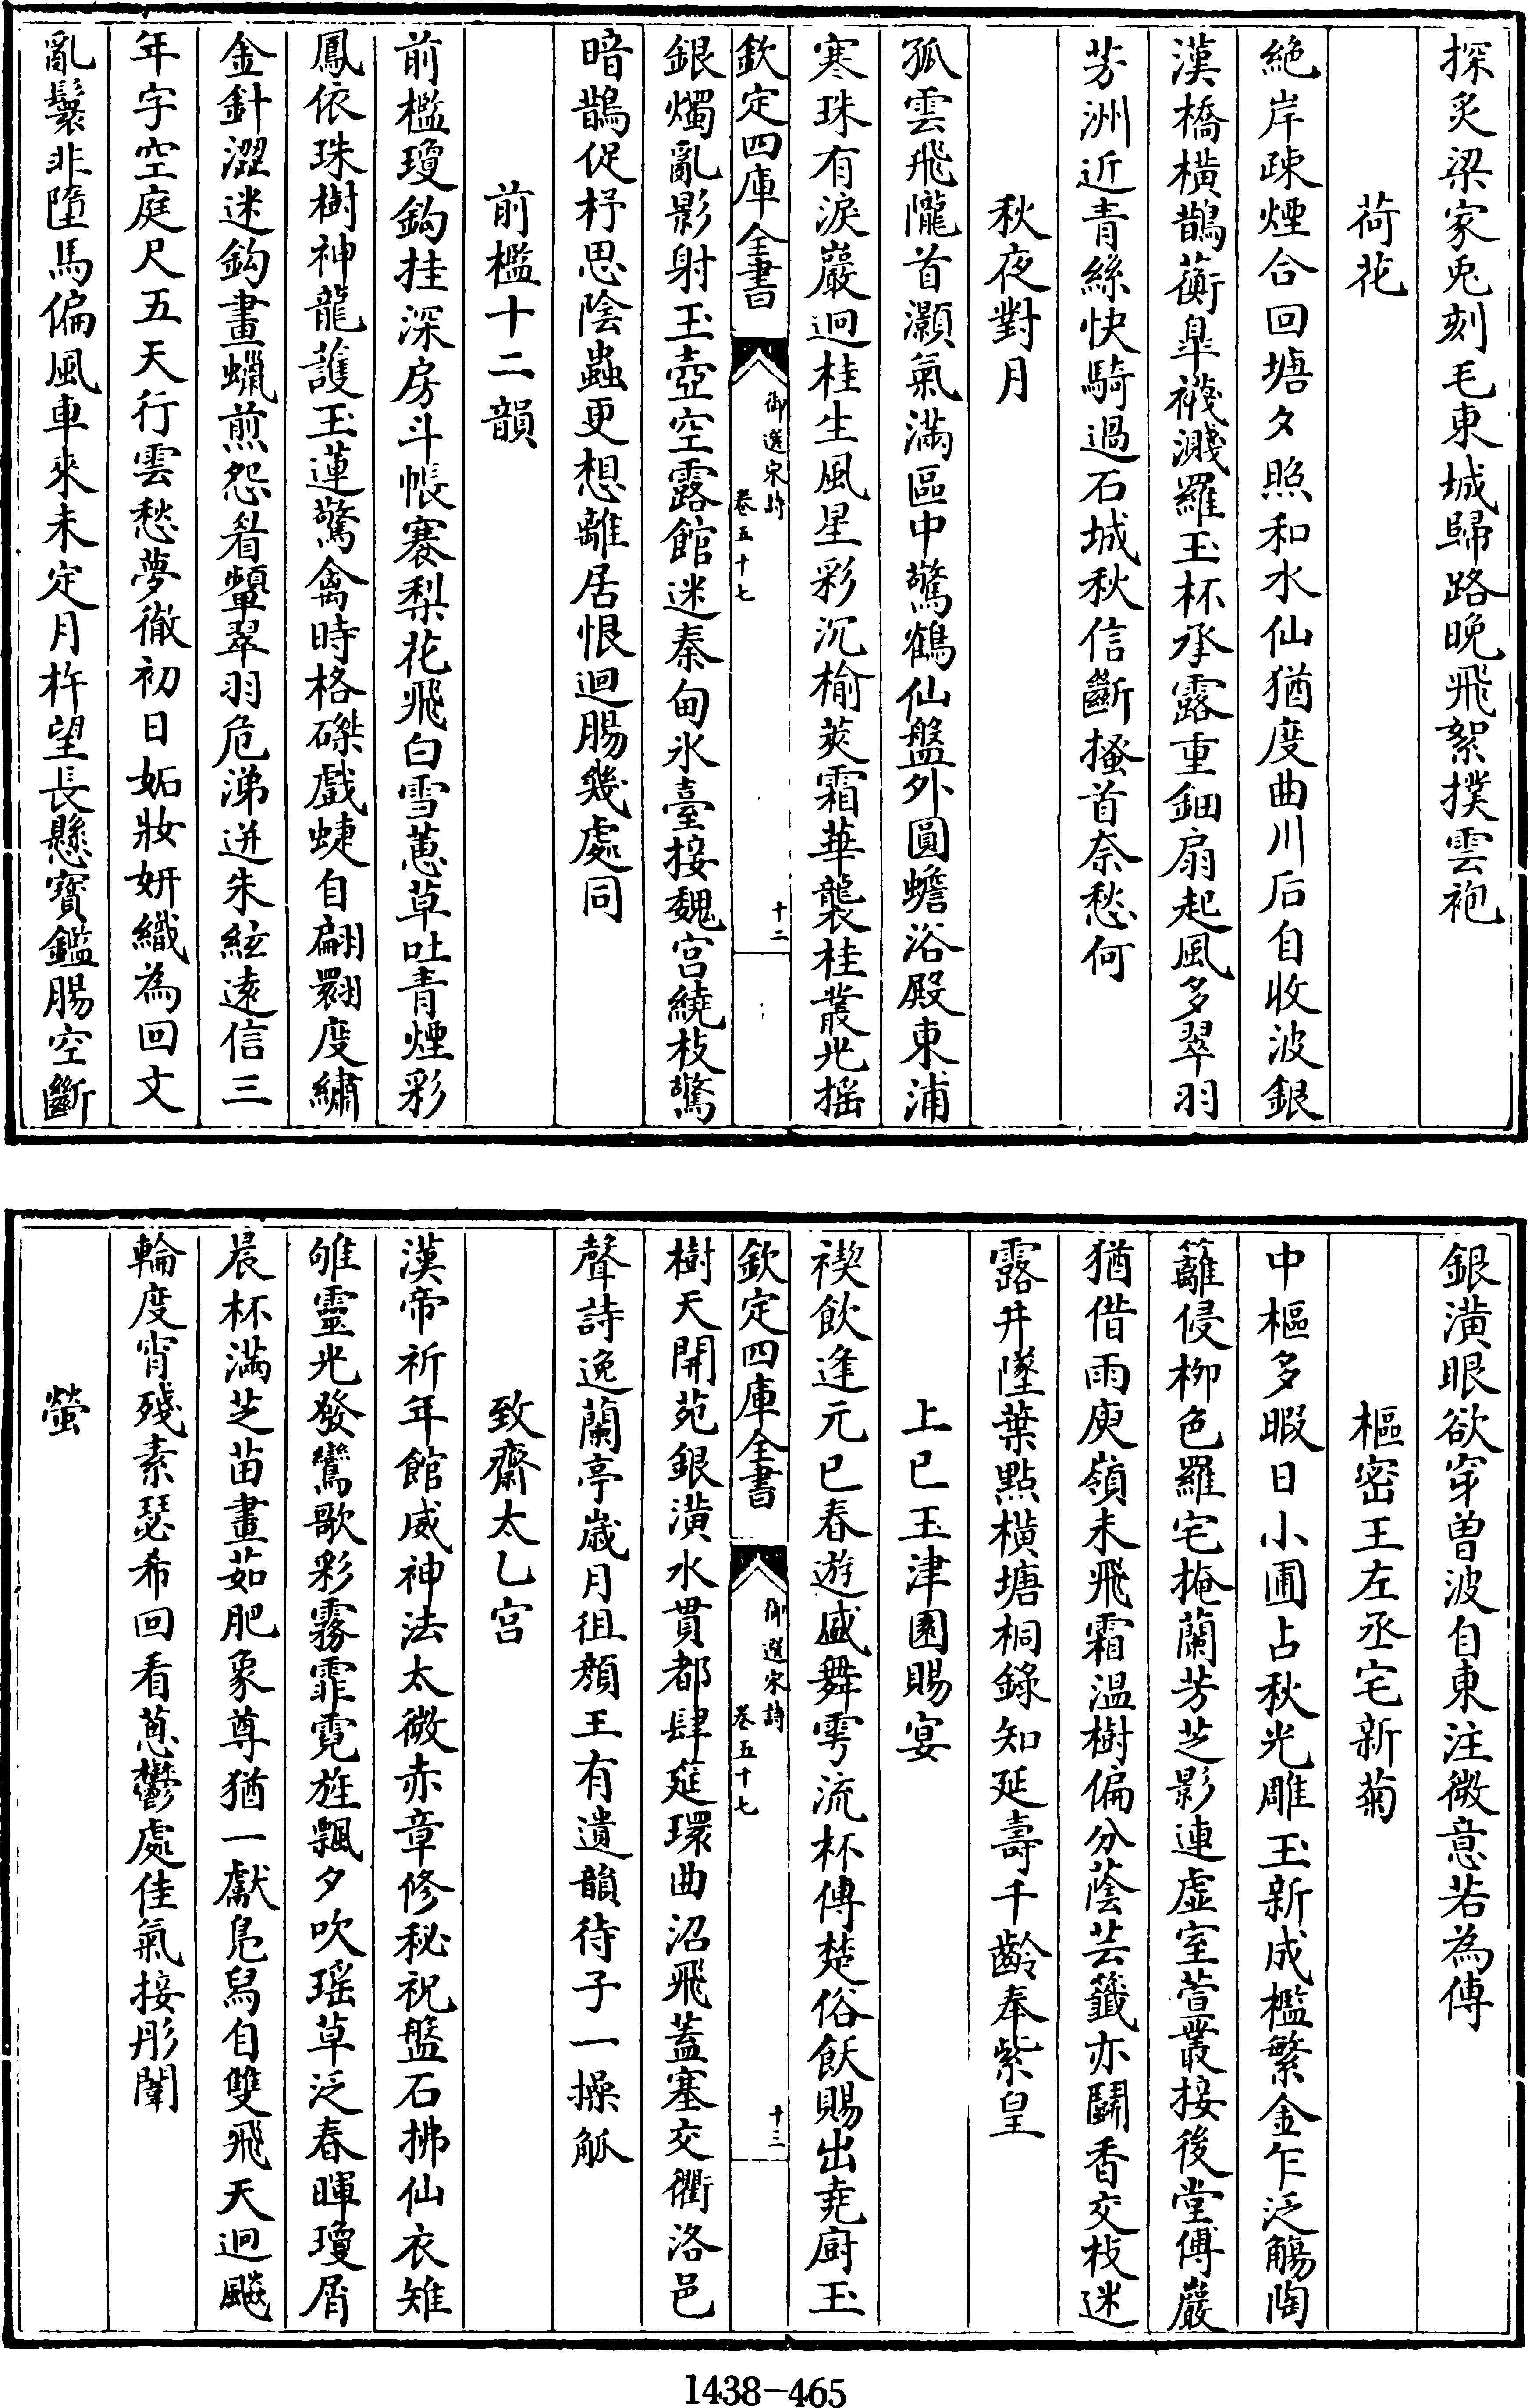 探炙梁家兎刻毛東城歸路晚飛絮撲雲袍
荷花
絶岸疎煙合回塘夕照和水仙猶度曲川后自收波銀
漢橋横鵲蘅臯襪濺羅玉杯承露重鈿扇起風多翠羽
芳洲近青絲快騎過石城秋信斷搔首奈愁何
秋夜對月
孤雲飛隴首灝氣滿區中驚鶴仙盤外圓蟾浴殿東浦
寒珠有淚巖迥桂生風星彩沉榆莢霜華襲桂叢光摇
欽定四庫全書
御選宋詩
卷五十七
十二
銀燭亂影射玉壺空露館迷秦甸氷臺接魏宫繞枝驚
暗鵲促杼思陰蟲更想離居恨迴腸幾處同
前檻十二韻
前檻瓊鈎挂深房斗帳褰梨花飛白雪蕙草吐青煙彩
鳳依珠樹神龍護玉蓮驚禽時格磔戲蜨自翩翾度繡
金針澀迷鈎畫蠟煎怨眉顰翠羽危涕迸朱絃遠信三
年字空庭尺五天行雲愁夢徹初日妬妝妍織為回文
亂鬟非墮馬偏風車來未定月杵望長懸寳鑑腸空斷
銀潢眼欲穿曽波自東注微意若為傳
樞密王左丞宅新菊
中樞多暇日小圃占秋光雕玉新成檻繁金乍泛觴陶
籬侵柳色羅宅掩蘭芳芝影連虚室萱叢接後堂傅巖
猶借雨庾嶺未飛霜温樹偏分蔭芸籖亦鬭香交枝迷
露井墜葉點横塘桐錄知延壽千齡奉紫皇
上巳玉津園賜宴
禊飲逢元巳春遊盛舞雩流杯傳楚俗飫賜出堯廚玉
欽定四庫全書
御選宋詩
卷五十七
十三
樹天開苑銀潢水貫都肆筵環曲沼飛蓋塞交衢洛邑
聲詩逸蘭亭歲月徂頽王有遺韻待子一操觚
致齋太乙宫
漢帝祈年館威神法太微赤章修秘祝盤石拂仙衣雉
雊靈光發鸞歌彩霧霏霓旌飄夕吹瑶草泛春暉瓊屑
晨杯滿芝苗畫茹肥象尊猶一獻鳬舄自雙飛天迥飈
輪度宵殘素瑟希回看葱鬱處佳氣接彤闈
螢
1438-465